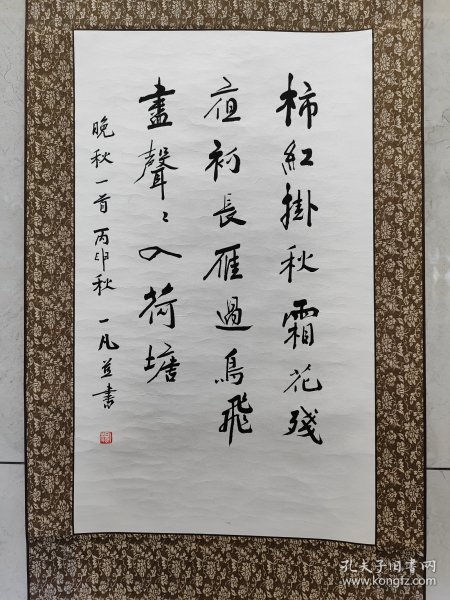 柿紅掛秋霜花殘
夜初長雁過鳥飛
盡聲〻入荷塘
晚秋一首 丙申秋 一凡並書
孔夫子旧书网
www.kongfz.com